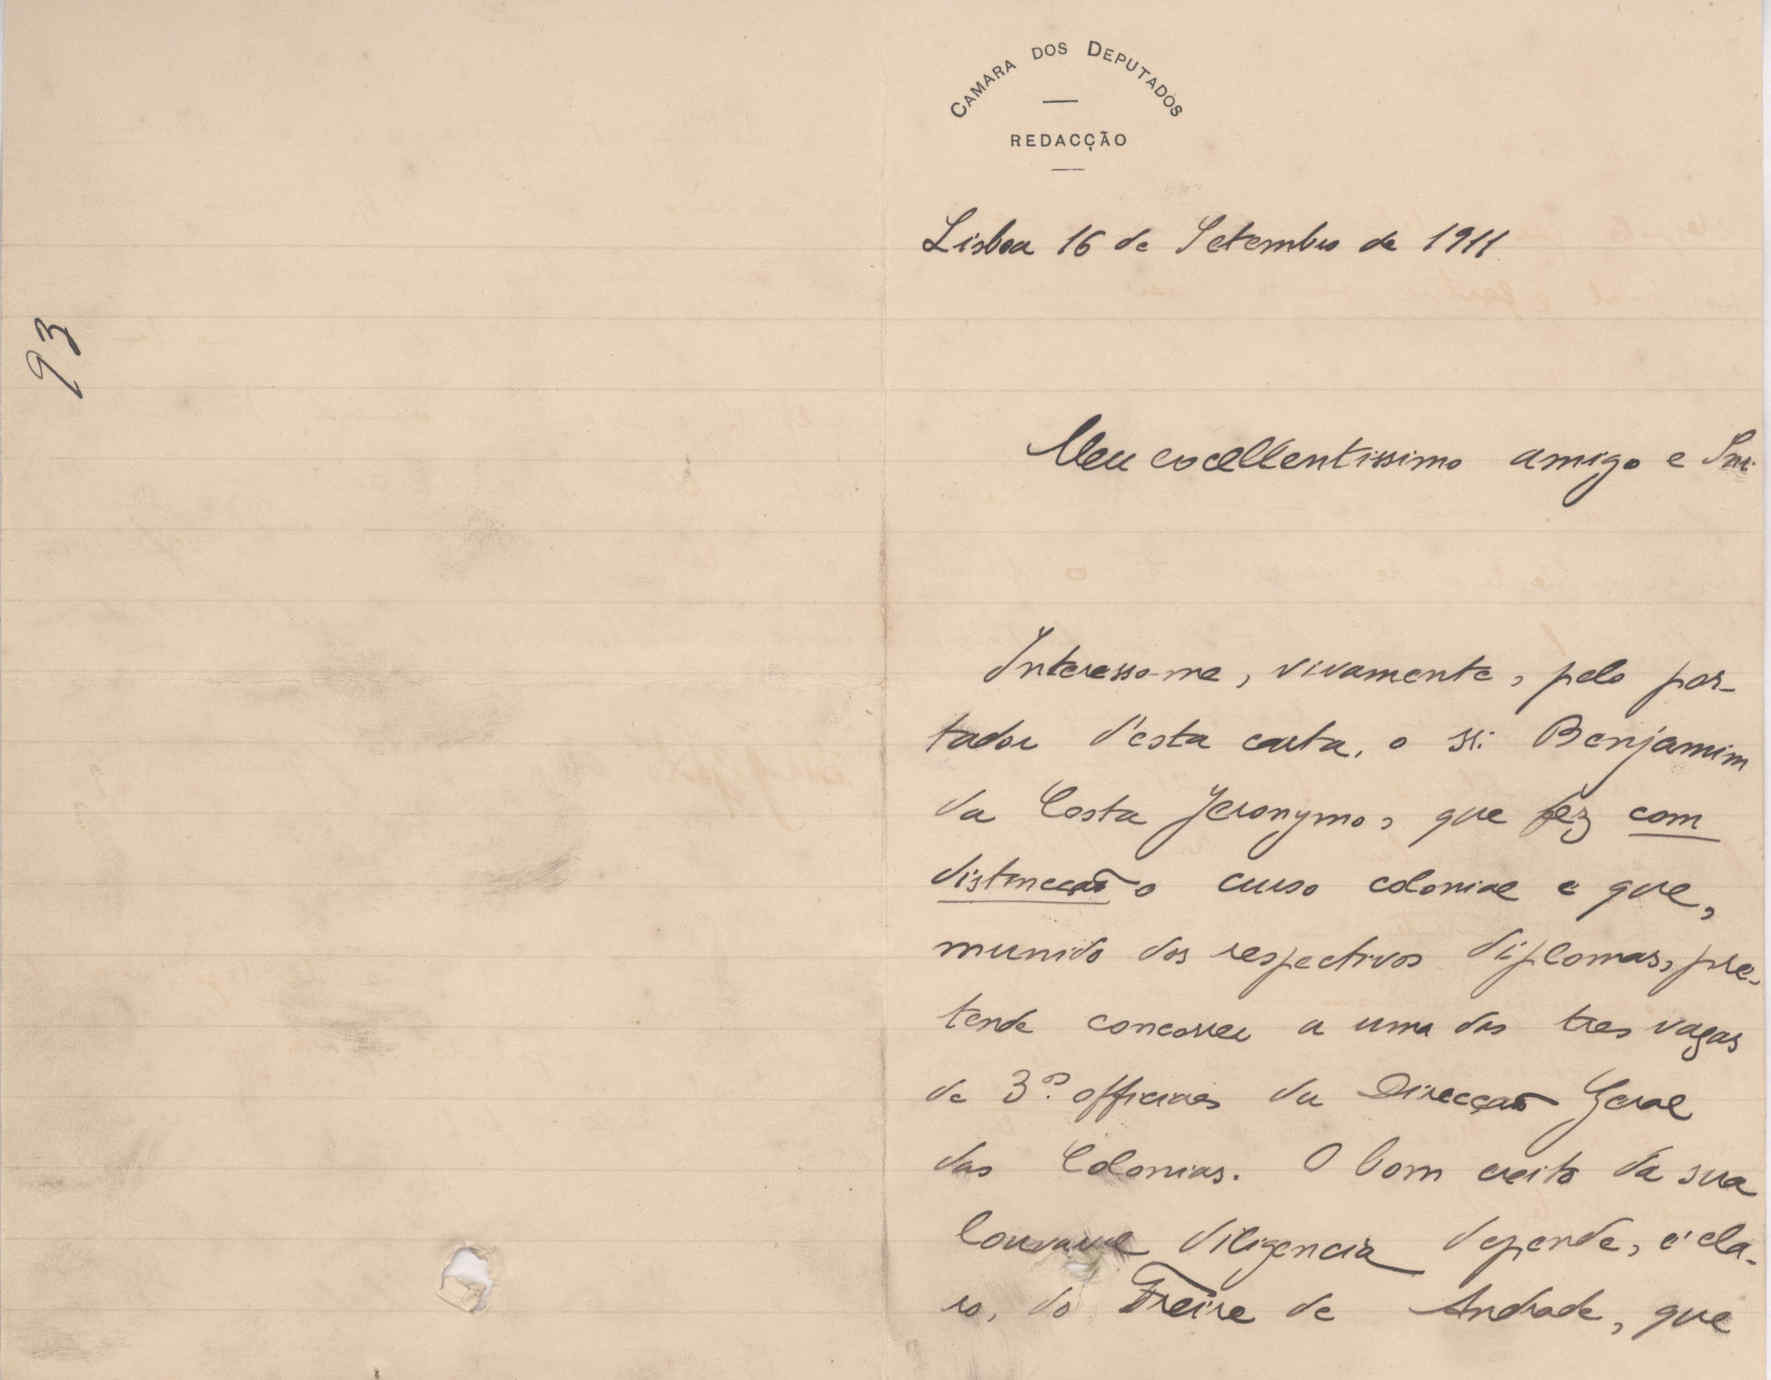 93
CAMARA DOS DEPUTADOS
REDACÇÃO
Lisboa 16 de Setembro de 1911
Meu excellentissimo amigo e Snr.
Interesso-me, vivamente, pelo por-
tador d'esta carta, o sr. Benjamim
da Costa Jeronymo, que fez com
distincção o curso colonial e que,
munido dos respectivos diplomas, pre-
tende concorrer a uma das tres vagas
de 3.os officiaes da Direcção Geral
das Colonias. O bom exito da sua
louvavel diligencia depende, é cla-
ro, do Freire de Andrade, que